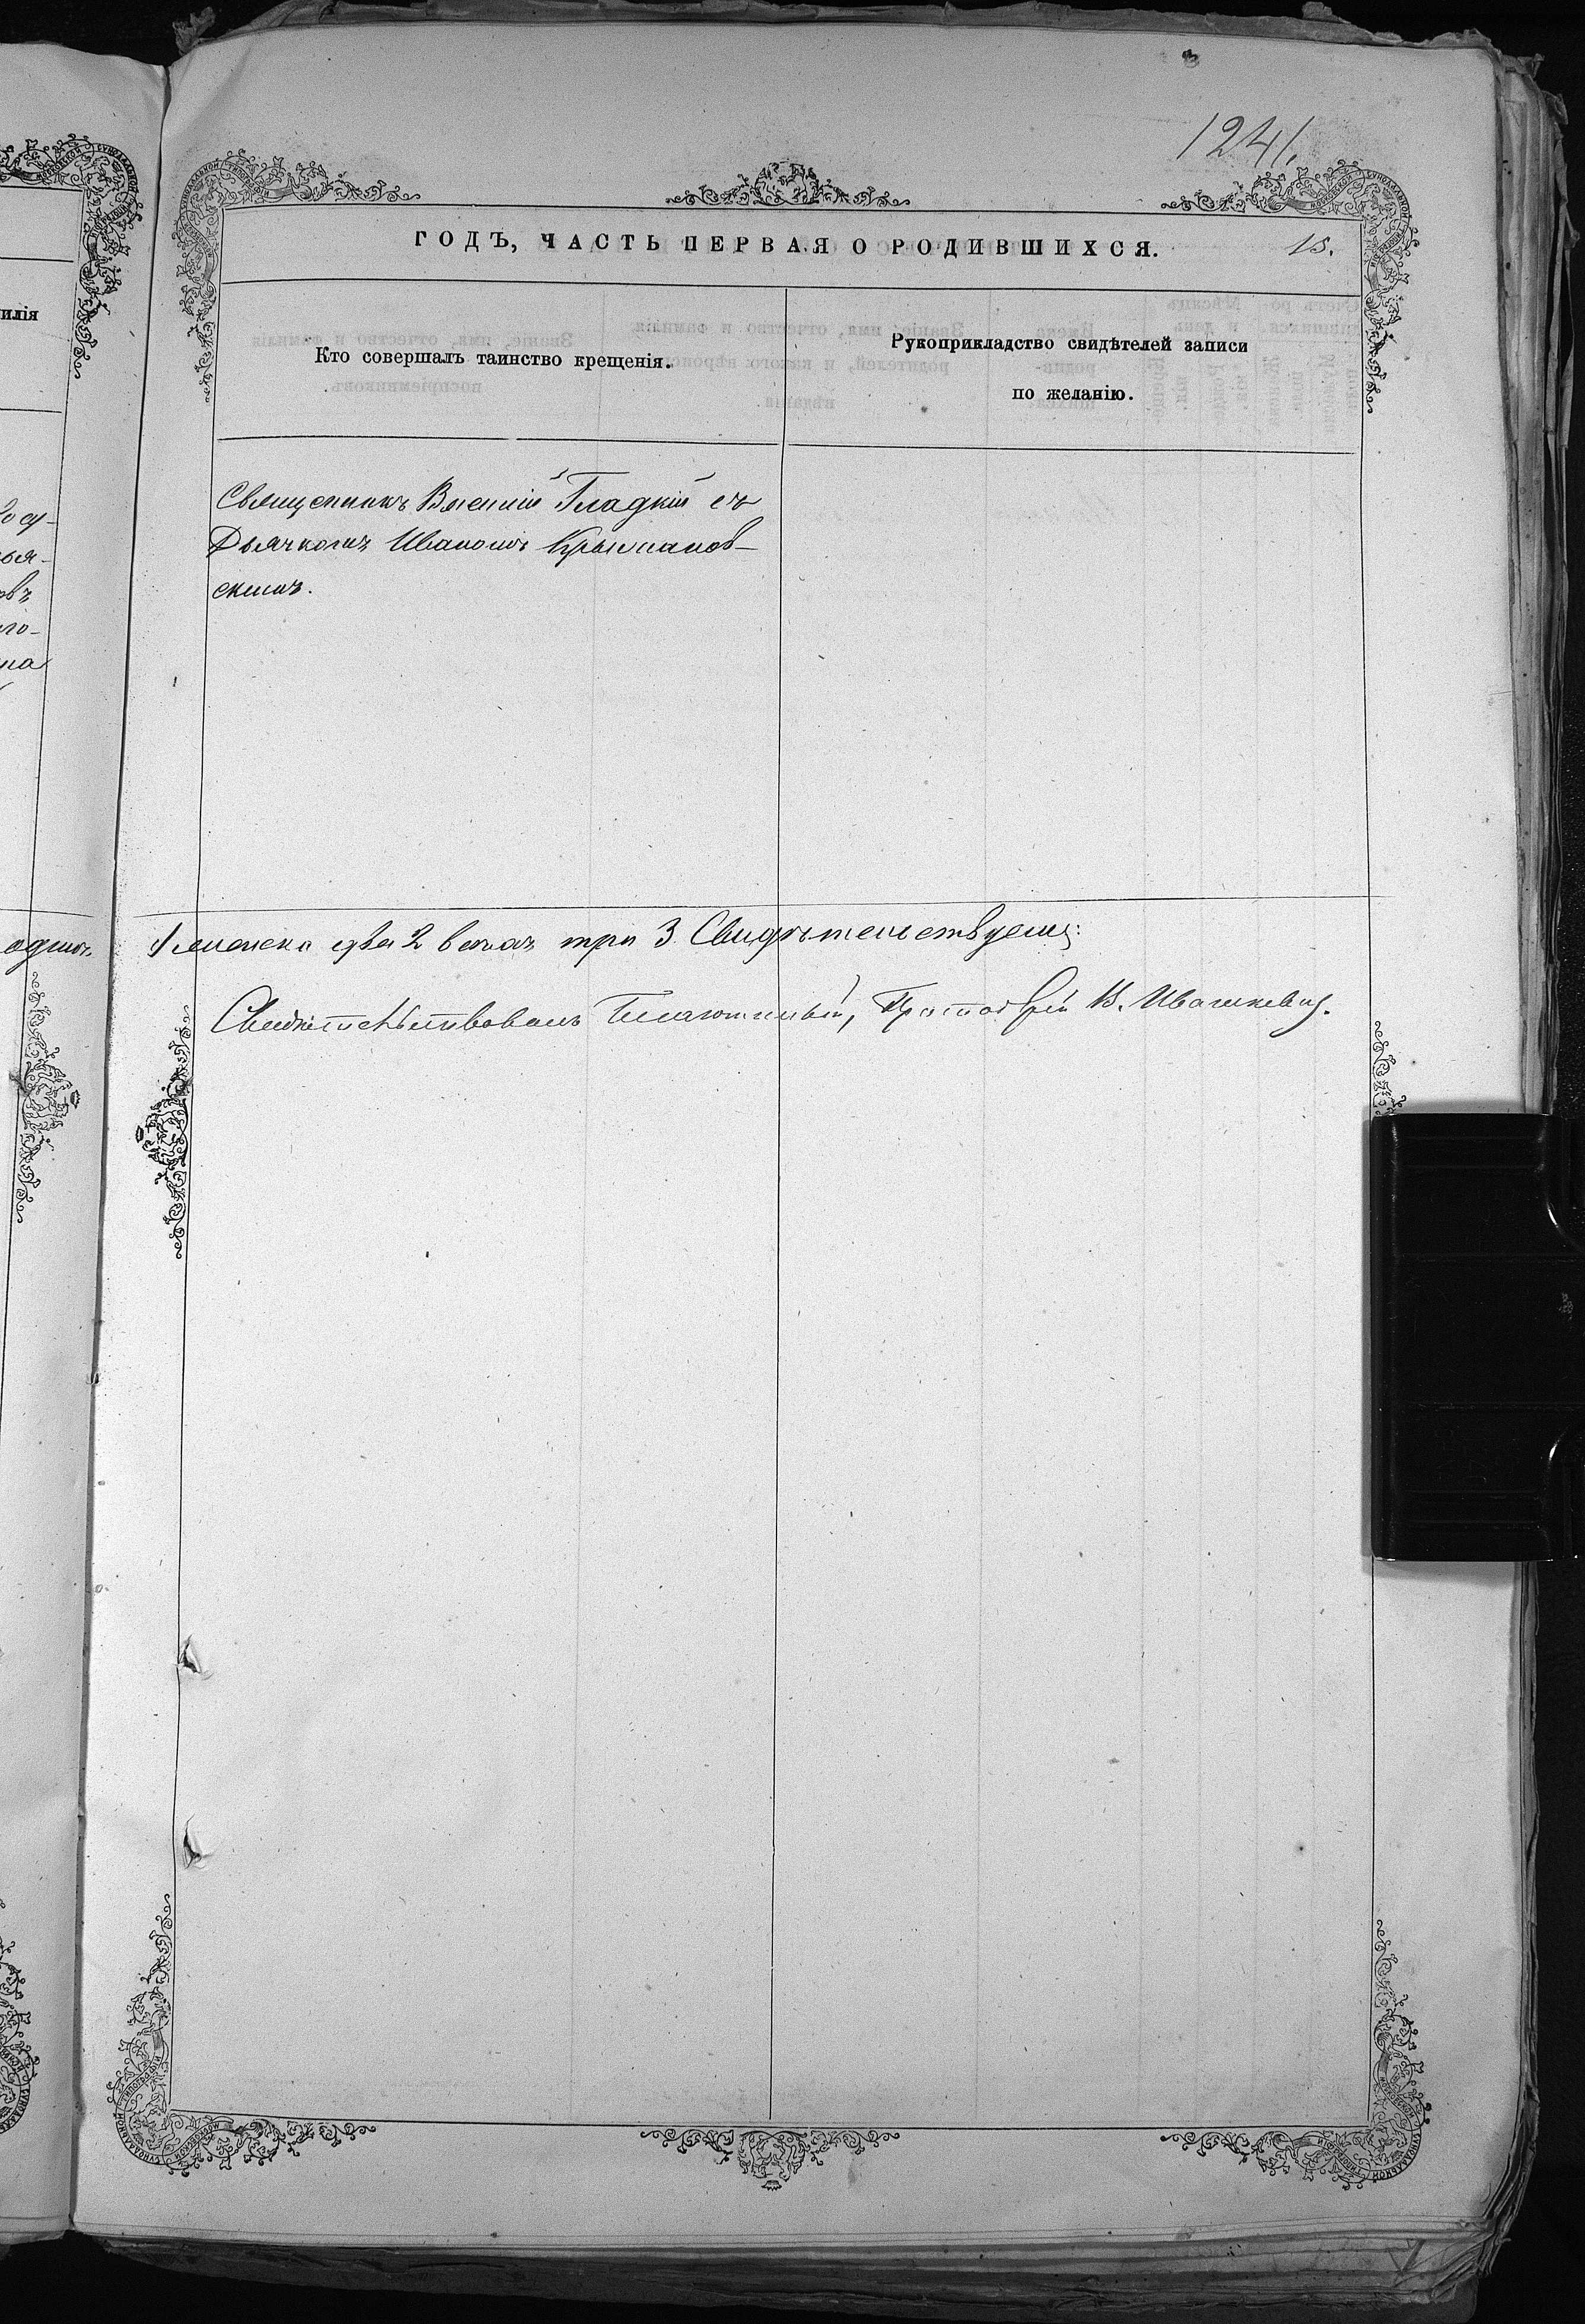 1241.
ГОДЪ, ЧАСТЬ ПЕРВАЯ О РОДИВШИХСЯ.
15.
илія
Кто совершалъ таинство крещенія.
Рукоприкладство свидѣтелей записи
по желанію.
Священникъ Гладкій съ
Дьячкомъ Иваномъ
скимъ.
одинъ,
1 женска два 2 всехъ три 3 Свидѣтельствуемъ:
Свидѣтельствовалъ Благочинный, Протоіерей Ивашкевичъ.